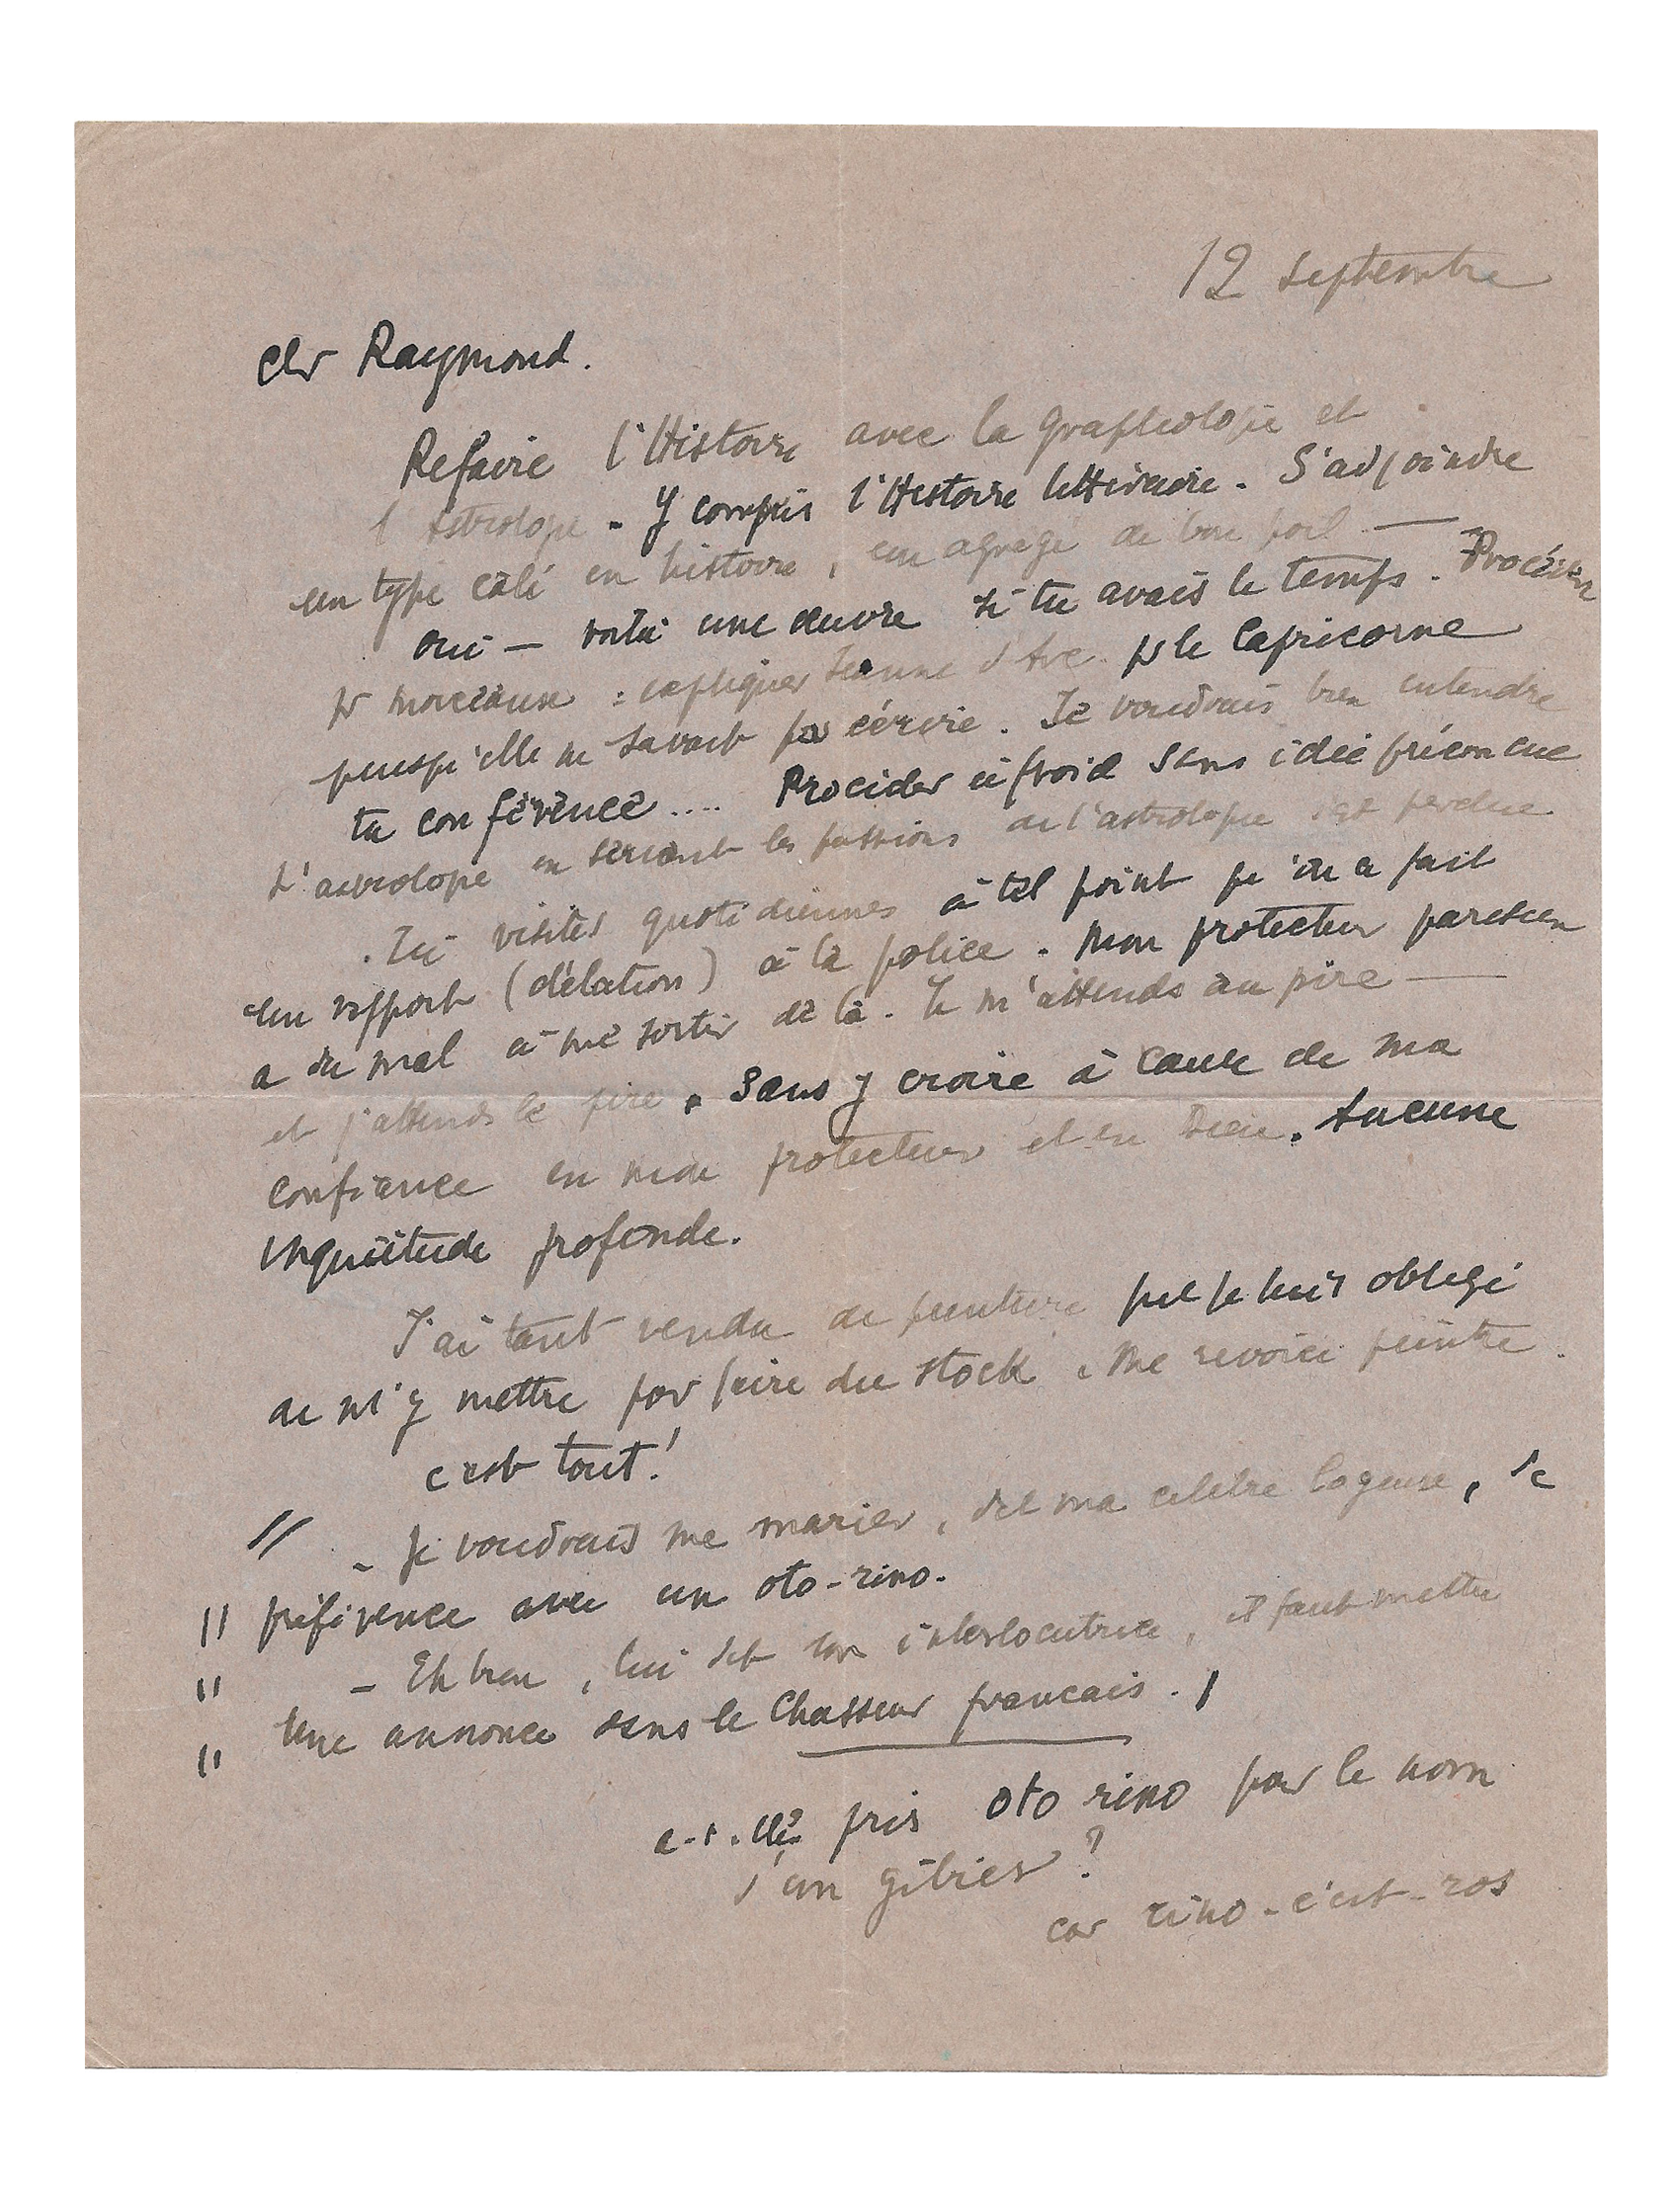 12 Septembre
Cher Raymond.
Refaire l'Histoire avec la graphologie et
l'astrologie. Y compris l'Histoire littéraire. S'adjoindre
un type calé en histoire, un agrégé de bon poil —
oui — voilà une œuvre si tu avais le temps. Procéder
pr morceaux : expliquer Jeanne d'Arc pr le Capricorne
puisqu'elle ne savait pas écrire. Je voudrais bien entendre
ta conférence .... Procéder à froid sans idée préconçue
L'astrologie en servant les passions de l'astrologue est perdue
. Ici visites quotidiennes à tel point qu'on a fait
un rapport (délation) à la police. Mon protecteur parisien
a du mal à me sortir de là. Je m'attends au pire —
et j'attends le pire. Sans y croire à cause de ma
confiance en mon protecteur et en Dieu. Aucune
inquiétude profonde.
J'ai tant vendu de peinture que je suis obligé
de m'y mettre pour faire du stock. Me revoici peintre.
c'est tout!
// - Je voudrais me marier, dit ma célèbre logeuse, de
// préférence avec un oto-rino.
// - Eh bien, lui dit son interlocutrice, il faut mettre
// une annonce dans le Chasseur français.
a-t-elle pris oto rino pour le nom
d'un gibier?
car rino-c'est-ros